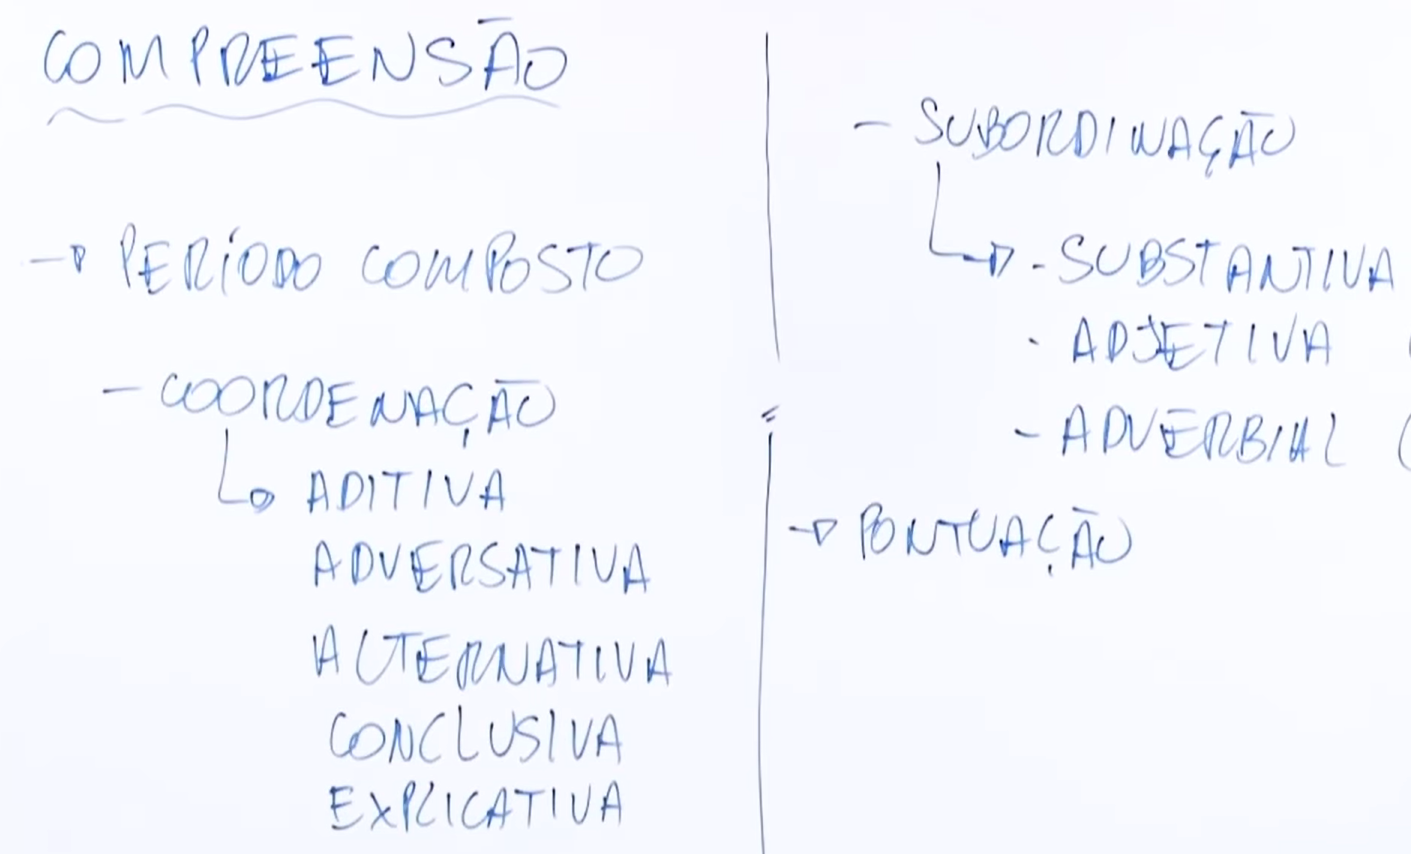 COMPREENSÃO
→ PERÍODO COMPOSTO
- COORDENAÇÃO
↳ ADITIVA
ADVERSATIVA
ALTERNATIVA
CONCLUSIVA
EXPLICATIVA
- SUBORDINAÇÃO
↳ - SUBSTANTIVA
- ADJETIVA (
- ADVERBIAL (
→ PONTUAÇÃO